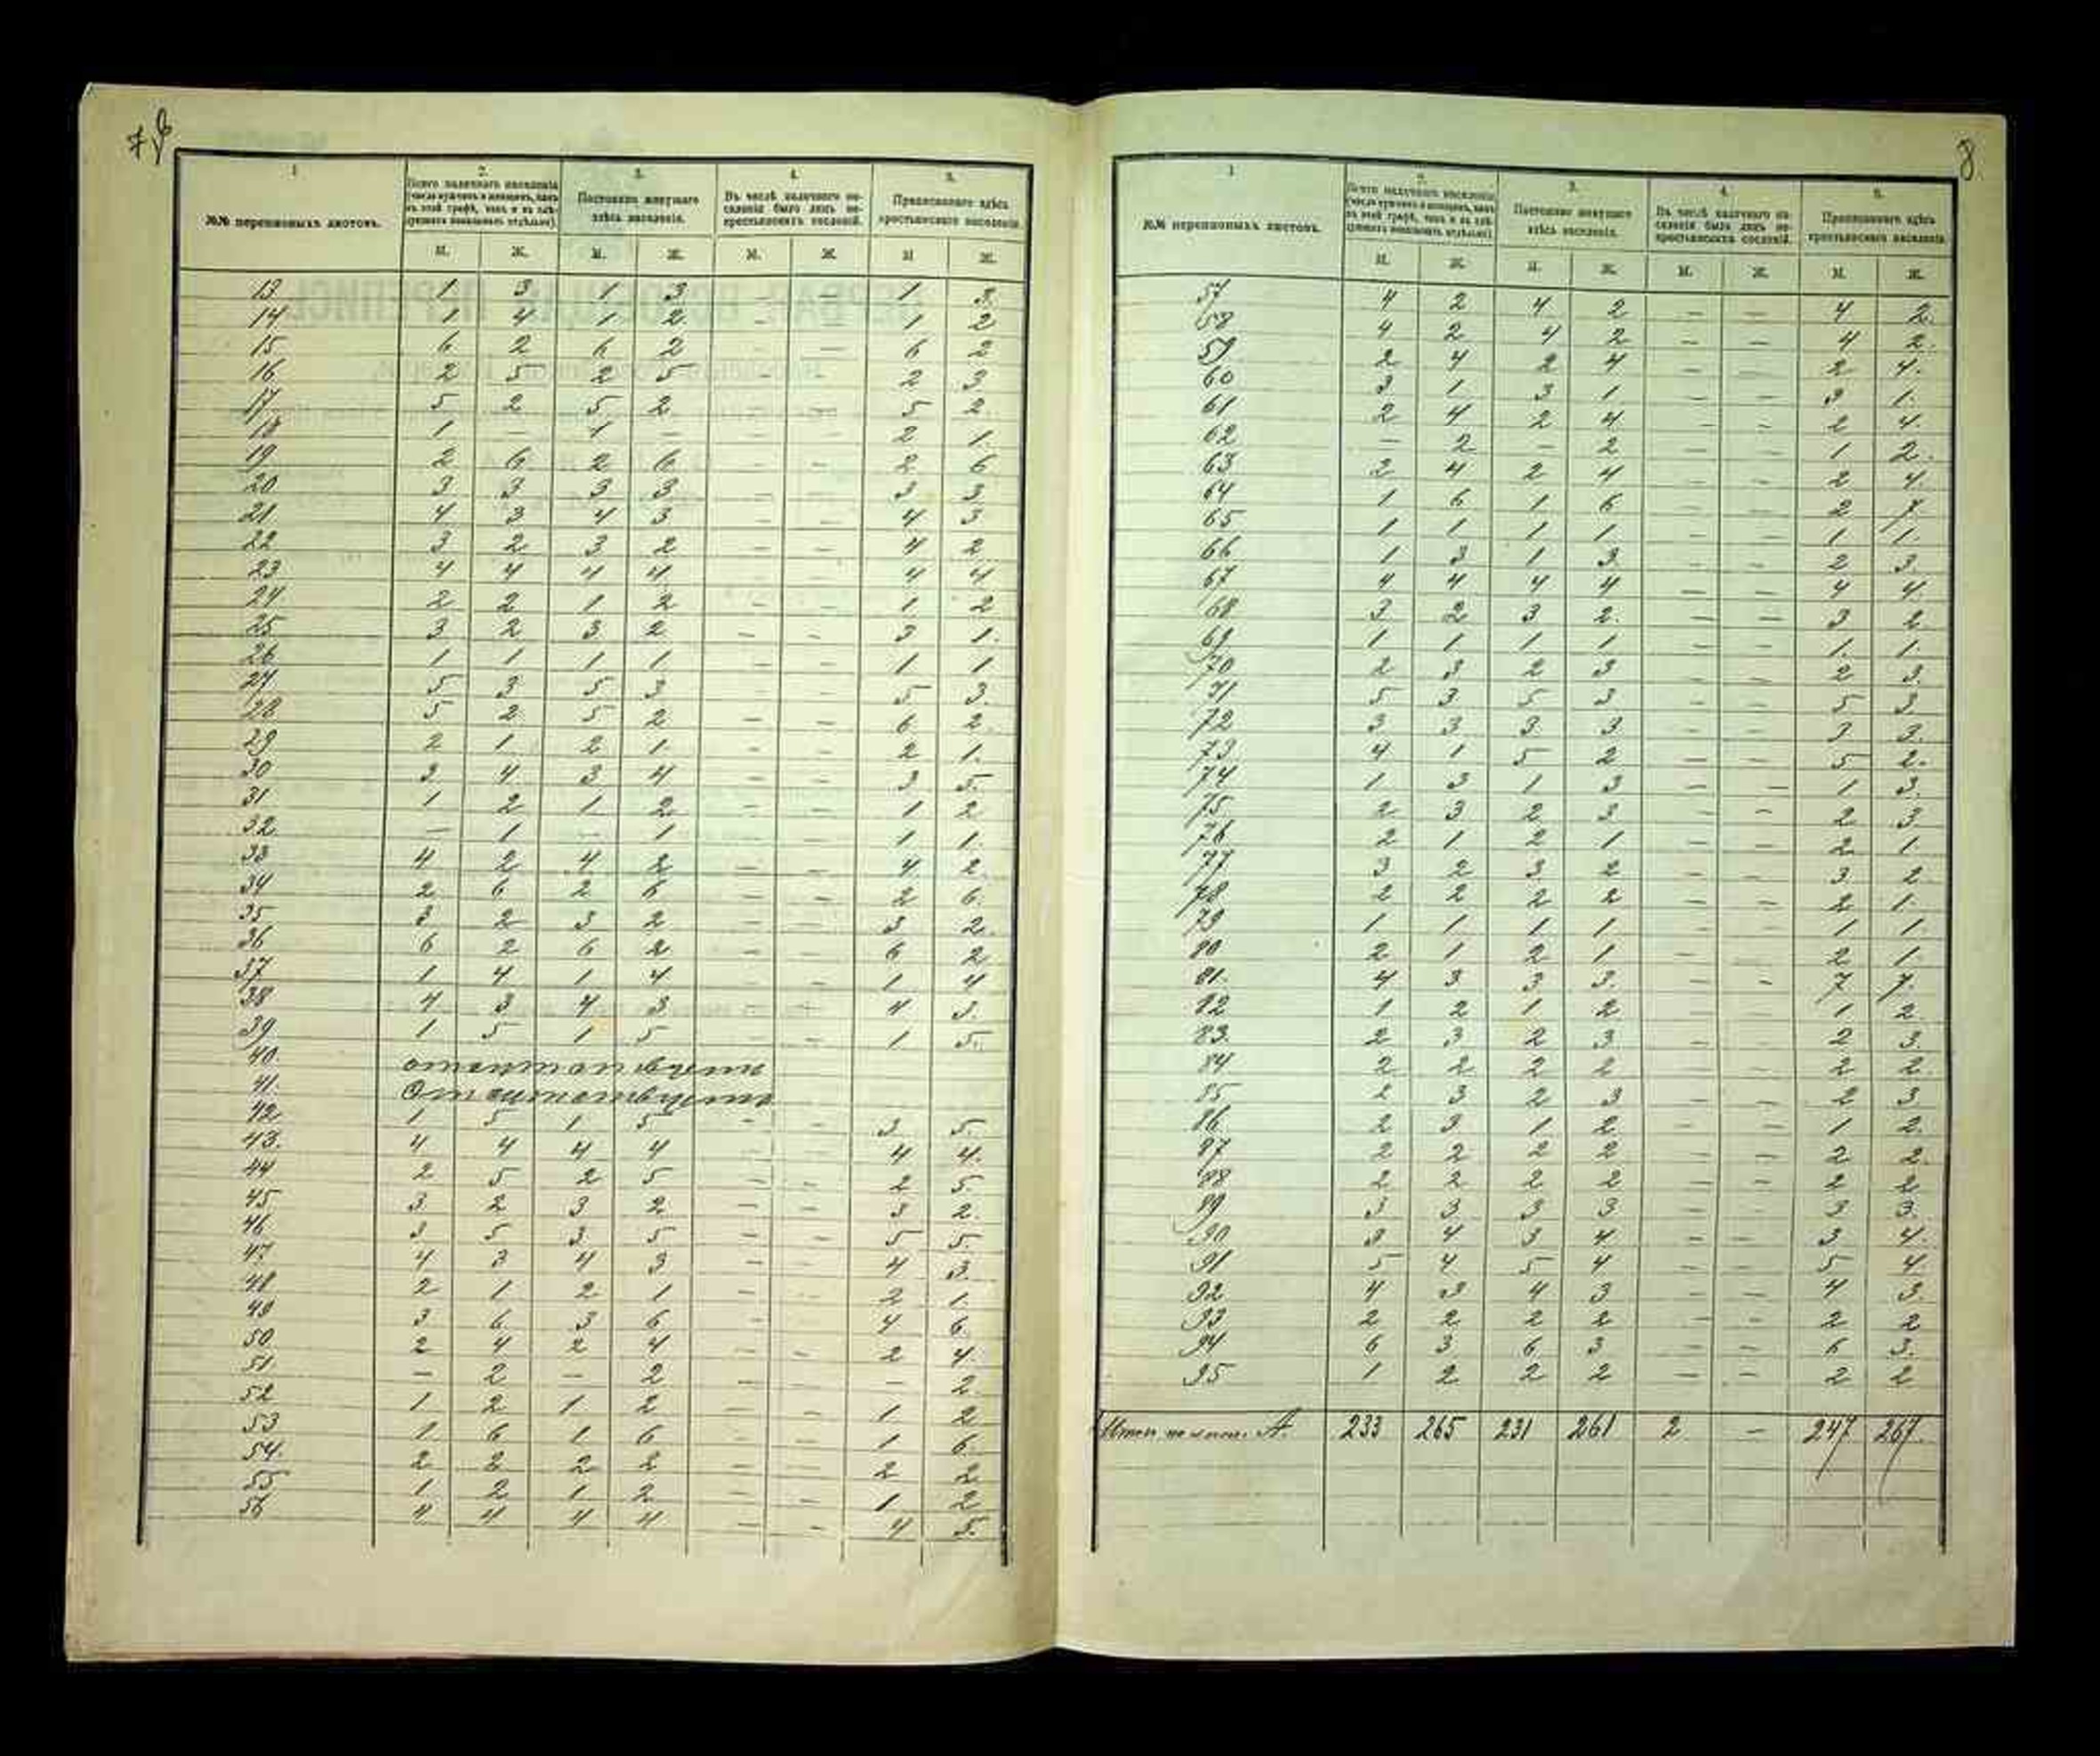 7
8
1
2.
3.
4.
5.
№№ переписныхъ листовъ.
Всего наличнаго населенія (число мужчинъ и женщинъ, какъ въ этой графѣ, такъ и въ слѣдующихъ показывать отдѣльно).
Постоянно живущаго здѣсь населенія.
Въ числѣ наличнаго населенія было лицъ некрестьянскихъ сословій.
Приписаннаго здѣсь крестьянскаго населенія.
М. Ж. М. Ж. М. Ж. М Ж.
13 1 3 1 3 - - 1 3.
14 1 4 1 2 - - 1 2
15 6 2 6 2 - - 6 2
16 2 5 2 5 - - 2 3.
17 5 2 5 2 - - 5 2.
18 1 - 1 - - - 2 1.
19 2 6 2 6 - - 2 6
20 3 3 3 3 - - 3 3
21 4 3 4 3 - - 4 3
22 3 2 3 2 - - 4 2
23 4 4 4 4 - - 4 4
24 2 2 1 2 - - 1 2
25 3 2 3 2 - - 3 1.
26 1 1 1 1 - - 1 1
27 5 3 5 3 - - 5 3.
28 5 2 5 2 - - 6 2.
29 2 1 2 1 - - 2 1.
30 3 4 3 4 - - 3 5.
31 1 2 1 2 - - 1 2
32 - 1 - 1 - - 1 1.
33 4 2 4 2 - - 4 2.
34 2 6 2 6 - - 2 6.
35 3 2 3 2 - - 3 2.
36 6 2 6 2 - - 6 2
37 1 4 1 4 - - 1 4
38 4 3 4 3 - - 4 3.
39 1 5 1 5 - - 1 5.
40.
41.
42 1 5 1 5 - - 3 5.
43. 4 4 4 4 - - 4 4.
44 2 5 2 5 - - 2 5.
45 3 2 3 2 - - 3 2.
46 3 5 3 5 - - 5 5.
47 4 3 4 3 - - 4 3.
48 2 1 2 1 - - 2 1.
49 3 6 3 6 - - 4 6.
50 2 4 2 4 - - 2 4.
51 - 2 - 2 - - - 2.
52 1 2 1 2 - - 1 2
53 1 6 1 6 - - 1 6.
54. 2 2 2 2 - - 2 2
55 1 2 1 2 - - 1 2
56 4 4 4 4 - - 4 5.
1
2.
3.
4.
5.
№№ переписныхъ листовъ.
Всего наличнаго населенія (число мужчинъ и женщинъ, какъ въ этой графѣ, такъ и въ слѣдующихъ показывать отдѣльно).
Постоянно живущаго здѣсь населенія.
Въ числѣ наличнаго населенія было лицъ некрестьянскихъ сословій.
Приписаннаго здѣсь крестьянскаго населенія.
М. Ж. М. Ж. М. Ж. М. Ж.
57 4 2 4 2 - - 4 2.
58 4 2 4 2 - - 4 2.
59 2 4 2 4 - - 2 4.
60 3 1 3 1 - - 3 1.
61 2 4 2 4 - - 2 4.
62 - 2 - 2 - - 1 2.
63 2 4 2 4 - - 2 4.
64 1 6 1 6 - - 2 7.
65 1 1 1 1 - - 1 1.
66 1 3 1 3 - - 2 3.
67 4 4 4 4 - - 4 4.
68 3 2 3 2. - - 3 2
69 1 1 1 1 - - 1. 1.
70 2 3 2 3 - - 2 3.
71 5 3 5 3 - - 5 3
72 3 3 3 3 - - 3 3.
73 4 1 5 2 - - 5 2.
74 1 3 1 3 - - 1 3.
75 2 3 2 3 - - 2 3
76 2 1 2 1 - - 2 1
77 3 2 3 2 - - 3 2
78 2 2 2 2 - - 2 1.
79 1 1 1 1 - - 1 1
80 2 1 2 1 - - 2 1.
81. 4 3 3 3. - - 7 7.
82 1 2 1 2 - - 1 2.
83. 2 3 2 3 - - 2 3.
84 2 2 2 2 - - 2 2.
85 2 3 2 3 - - 2 3
86 2 3 1 2 - - 1 2.
87 2 2 2 2 - - 2 2.
88 2 2 2 2 - - 2 2
89 3 3 3 3 - - 3 3.
90 3 4 3 4 - - 3 4.
91 5 4 5 4 - - 5 4
92 4 3 4 3 - - 4 3.
93 2 2 2 2 - - 2 2
94 6 3 6 3 - - 6 3.
95 1 2 2 2 - - 2 2
А. 233 265 231 261 2 - 247 267